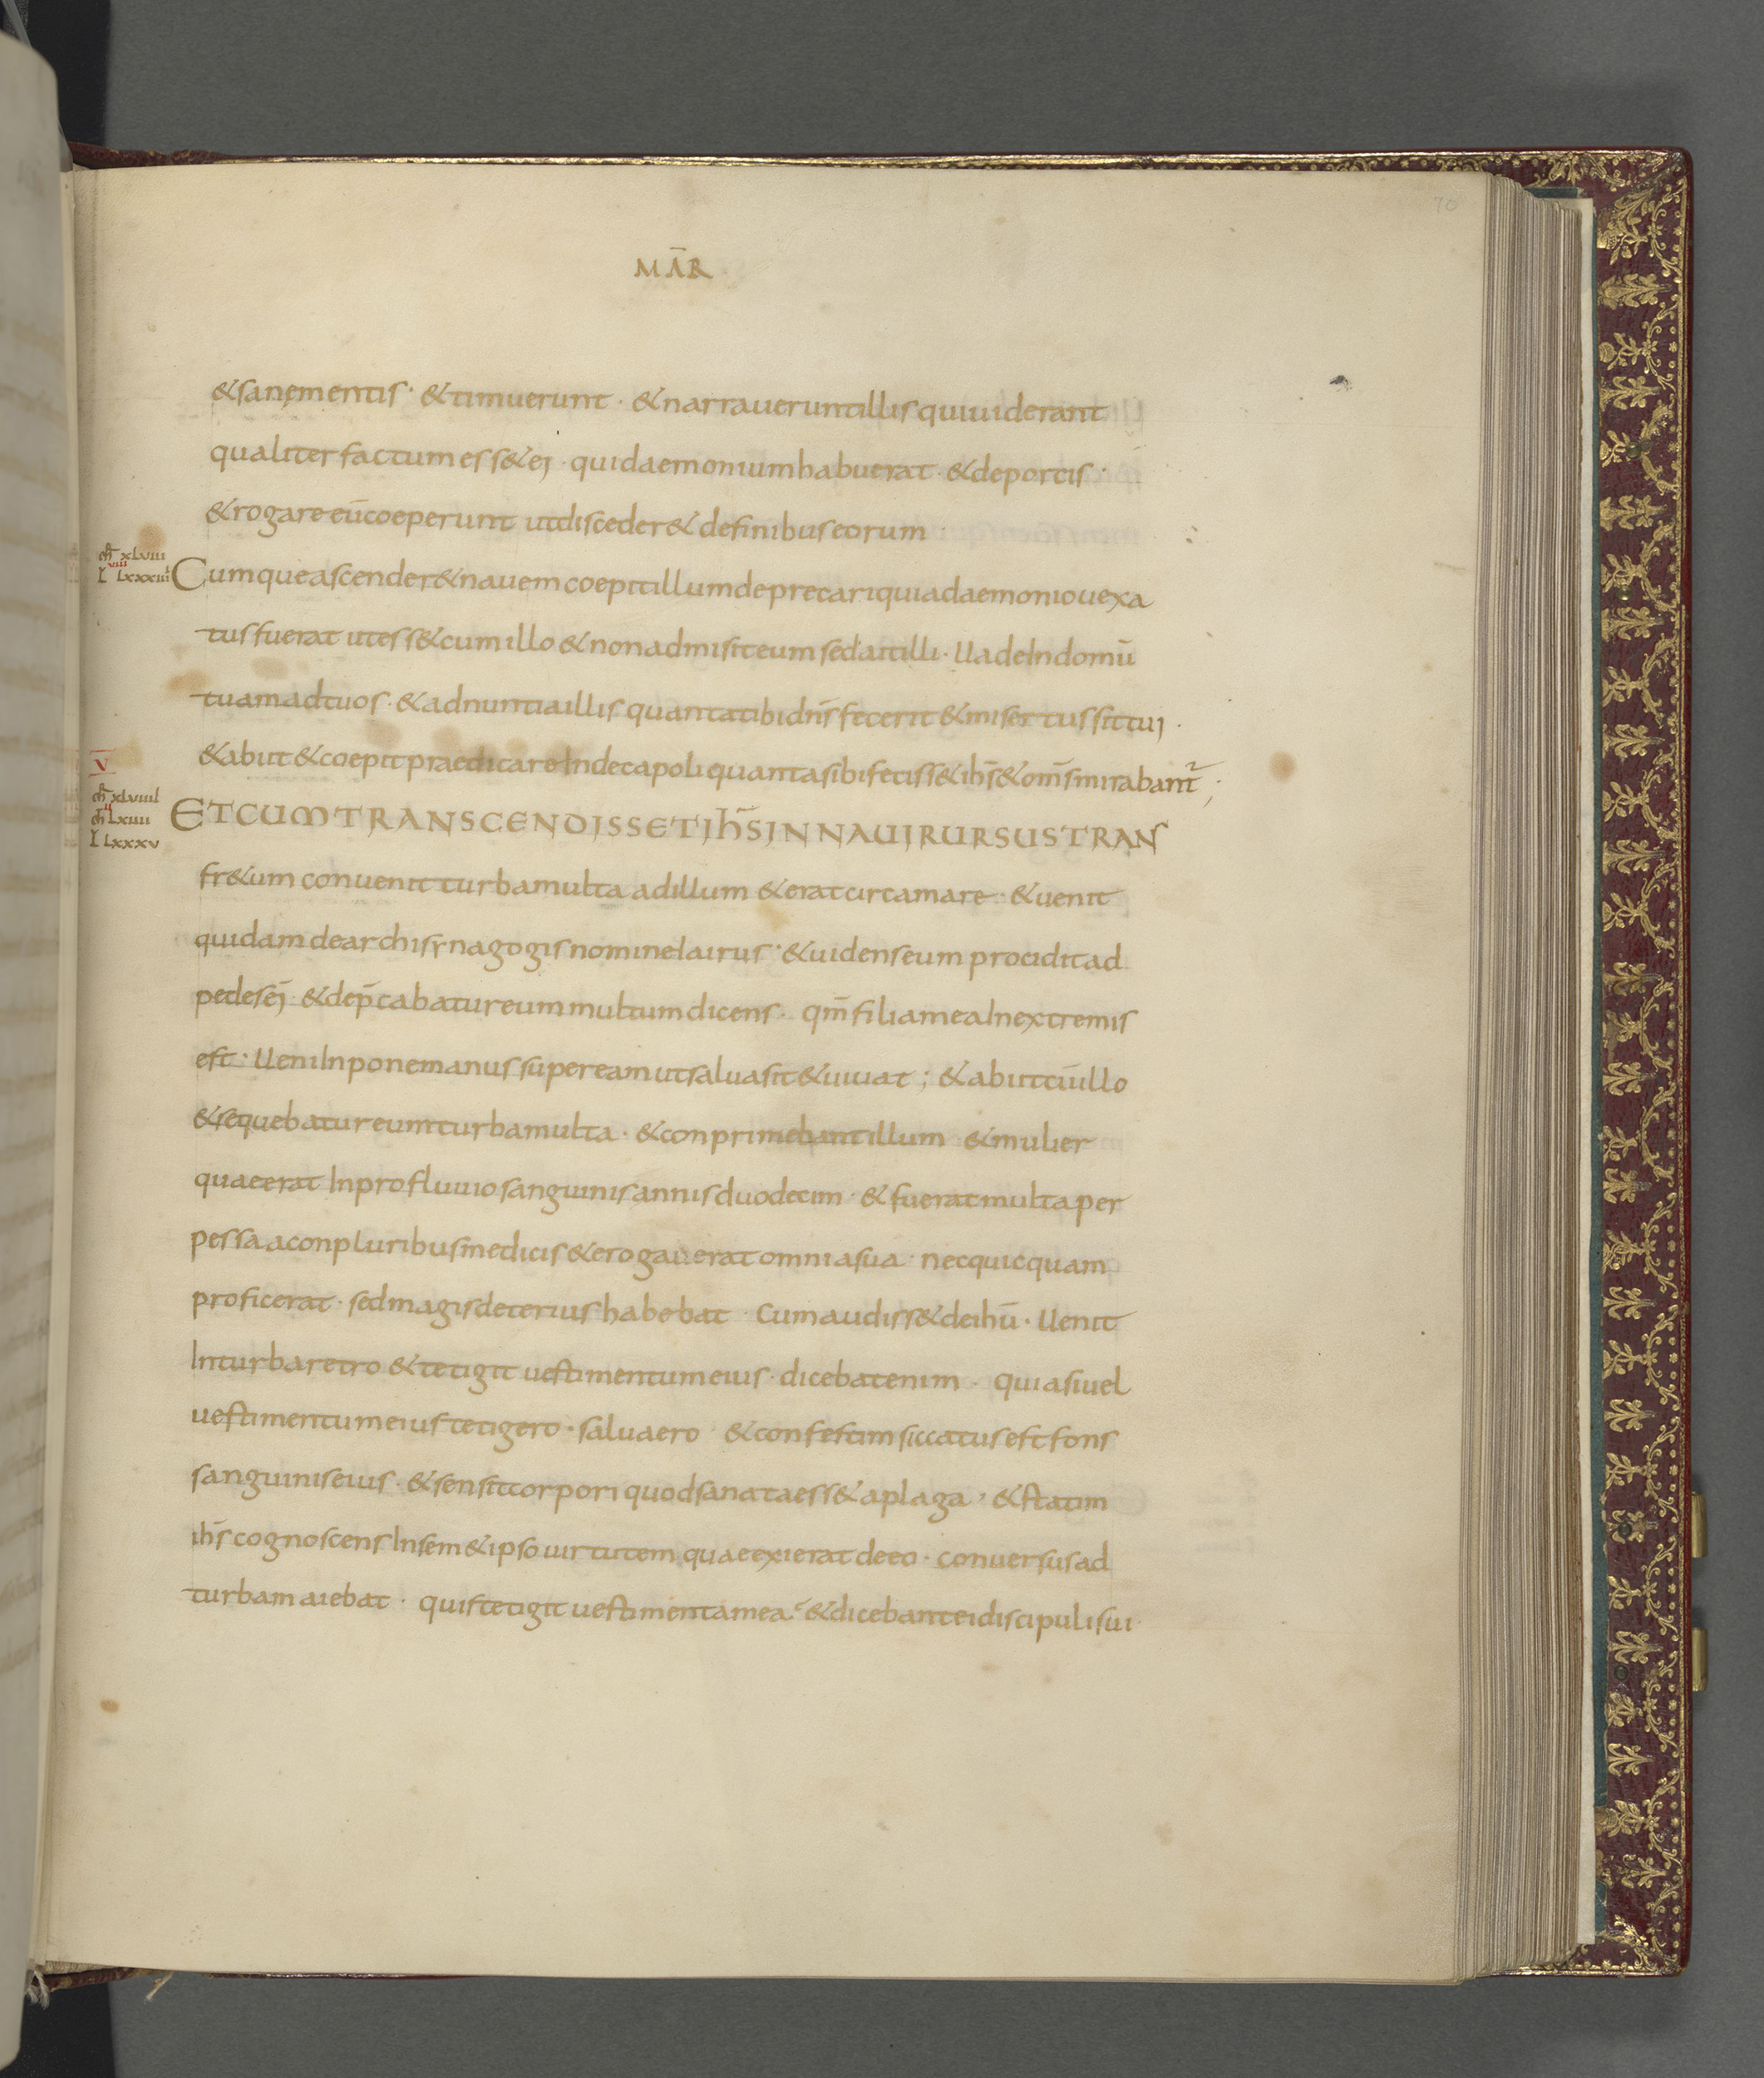 70
MAR̄
& sanę mentis · & timuerunt · & narrauerunt illis qui uiderant
qualiter factum ess& ei · qui daemonium habuerat · & de porcis ·
& rogare eū coeperunt ut disceder& de finibus eorum
Cumque ascender& nauem coepit illum deprecari qui a daemonio uexa
tus fuerat ut ess& cum illo & non admisit eum sed ait illi · Uade In domū
tuam ad tuos · & adnuntia illis quanta tibi dn̄s fecerit & misertus sit tui ·
& abiit & coepit praedicare In decapoli quanta sibi feciss& ih̄s & om̄s mirabant̄ ;
V
XLVIII
VIII
LXXXIIII
XLVIIII
II
LXIIII
LXXXV
ET CUM TRANSCENDISSET IH̄S IN NAUI RURSUS TRANS
fr&um conuenit turba multa ad illum & erat circa mare · & uenit
quidam de archisynagogis nomine Iairus · & uidens eum procidit ad
pedes ei · & dep̄cabatur eum multum dicens · qm̄ filia mea In extremis
est · Ueni Inpone manus super eam ut salua sit & uiuat ; & abiit cū illo
& sequebatur eum turba multa · & conprimebant illum & mulier
quae erat In profluuio sanguinis annis duodecim · & fuerat multa per
pessa a conpluribus medicis & erogauerat omnia sua · nec quicquam
proficerat · sed magis deterius habebat · Cum audiss& de ihū · Uenit
In turba retro & tetigit uestimentum eius · dicebat enim · quia si uel
uestimentum eius tetigero · salua ero · & confestim siccatus est fons
sanguinis eius · & sensit corpori quod sanata ess& a plaga · & statim
ih̄s cognoscens In sem&ipso uirtutem quae exierat de eo · conuersus ad
turbam aiebat · quis tetigit uestimenta mea · & dicebant ei discipuli sui ·